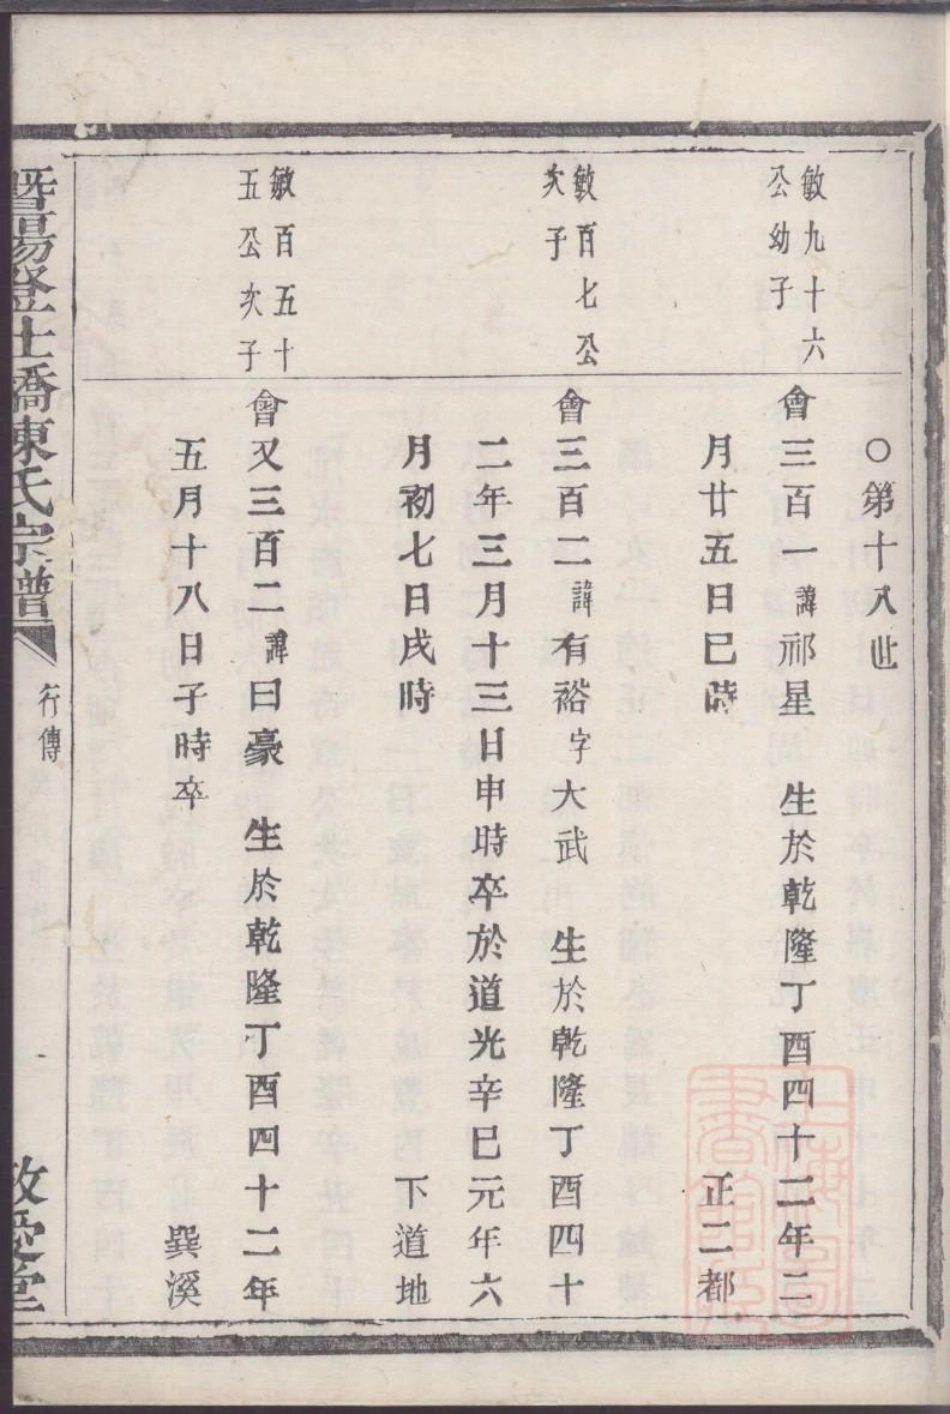 ○第十八世
敏九十六
公幼子
會三百一諱祁星　生於乾隆丁酉四十二年二
月廿五日巳時　正二都
敏百七公
次子
會三百二諱有裕字大武　生於乾隆丁酉四十
二年三月十三日申時卒於道光辛巳元年六
月初七日戌時　下道地
敏百五十
五公次子
會又三百二諱曰豪　生於乾隆丁酉四十二年
五月十八日子時卒　巽溪
暨陽登仕橋陳氏宗譜
行傳
敬愛堂
上海圖
書館藏